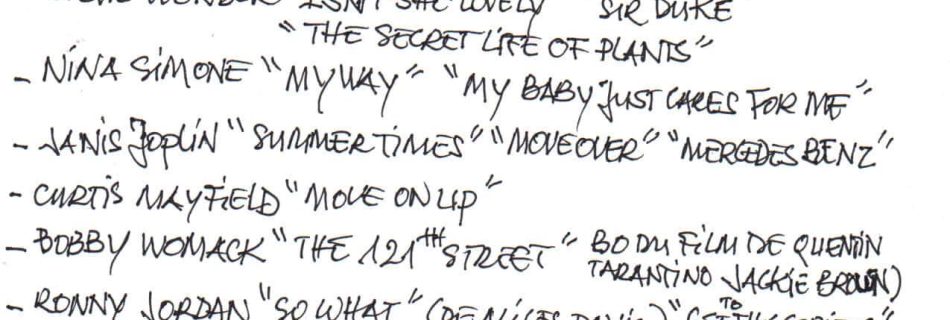 WONDER "ISN'T SHE LOVELY" "SIR DUKE"
"THE SECRET LIFE OF PLANTS"
- NINA SIMONE "MY WAY" "MY BABY JUST CARES FOR ME"
- JANIS JOPLIN "SUMMER TIMES" "MOVE OVER" "MERCEDES BENZ"
- CURTIS MAYFIELD "MOVE ON UP"
- BOBBY WOMACK "THE 121TH STREET" BO DU FILM DE QUENTIN
TARANTINO JACKIE BROWN)
- RONNY JORDAN "SO WHAT" (DE MILES DAVIS) "
TO